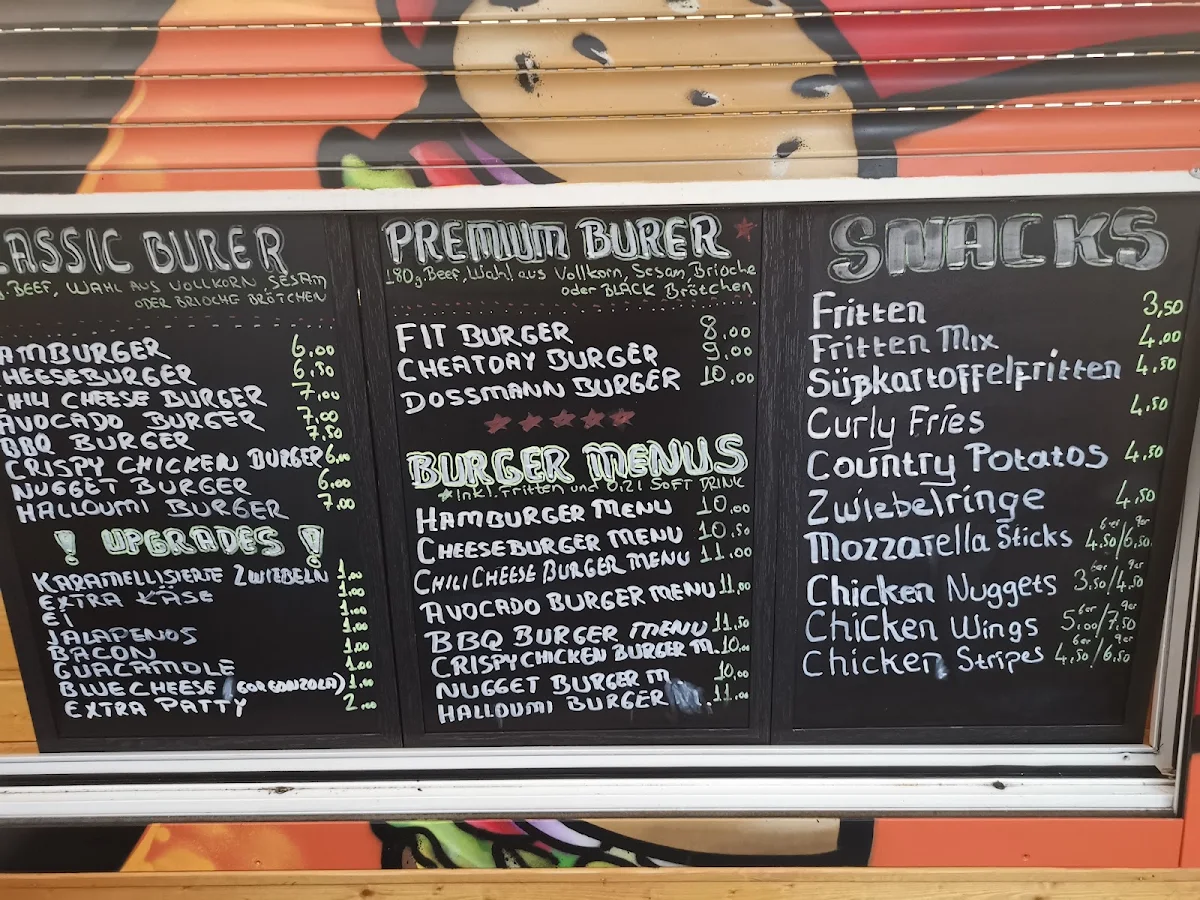 LASSIC BURER
g. BEEF, WAHL AUS VOLLKORN, SESAM
ODER BRIOCHE BRÖTCHEN
AMBURGER 6.00
HEESEBURGER 6.50
CHILI CHEESE BURGER 7.00
AVOCADO BURGER 7.00
BBQ BURGER 7.50
CRISPY CHICKEN BURGER 6.00
NUGGET BURGER 6.00
HALLOUMI BURGER 7.00
! UPGRADES !
KARAMELLISIERTE ZWIEBELN 1.00
EXTRA KÄSE 1.00
EI 1.00
JALAPENOS 1.00
BACON 1.00
GUACAMOLE 1.00
BLUE CHEESE (GORGONZOLA) 1.00
EXTRA PATTY 2.00
PREMIUM BURER
180g. Beef, Wahl aus Vollkorn, Sesam, Brioche
oder BLACK Brötchen
FIT BURGER 8.00
CHEATDAY BURGER 9.00
DOSSMANN BURGER 10.00
BURGER MENUS
*Inkl. Fritten und 0,2l SOFT DRINK
HAMBURGER MENU 10.00
CHEESEBURGER MENU 10.50
CHILI CHEESE BURGER MENU 11.00
AVOCADO BURGER MENU 11.00
BBQ BURGER MENU 11.50
CRISPY CHICKEN BURGER M. 10.00
NUGGET BURGER M. 10.00
HALLOUMI BURGER M. 11.00
SNACKS
Fritten 3,50
Fritten Mix 4.00
Süßkartoffelfritten 4.50
Curly Fries 4.50
Country Potatos 4.50
Zwiebelringe 4,50
Mozzarella Sticks 6er 4.50/9er 6,50
Chicken Nuggets 6er 3.50/9er 4.50
Chicken Wings 6er 5.00/9er 7.50
Chicken Stripes 6er 4,50/9er 6.50